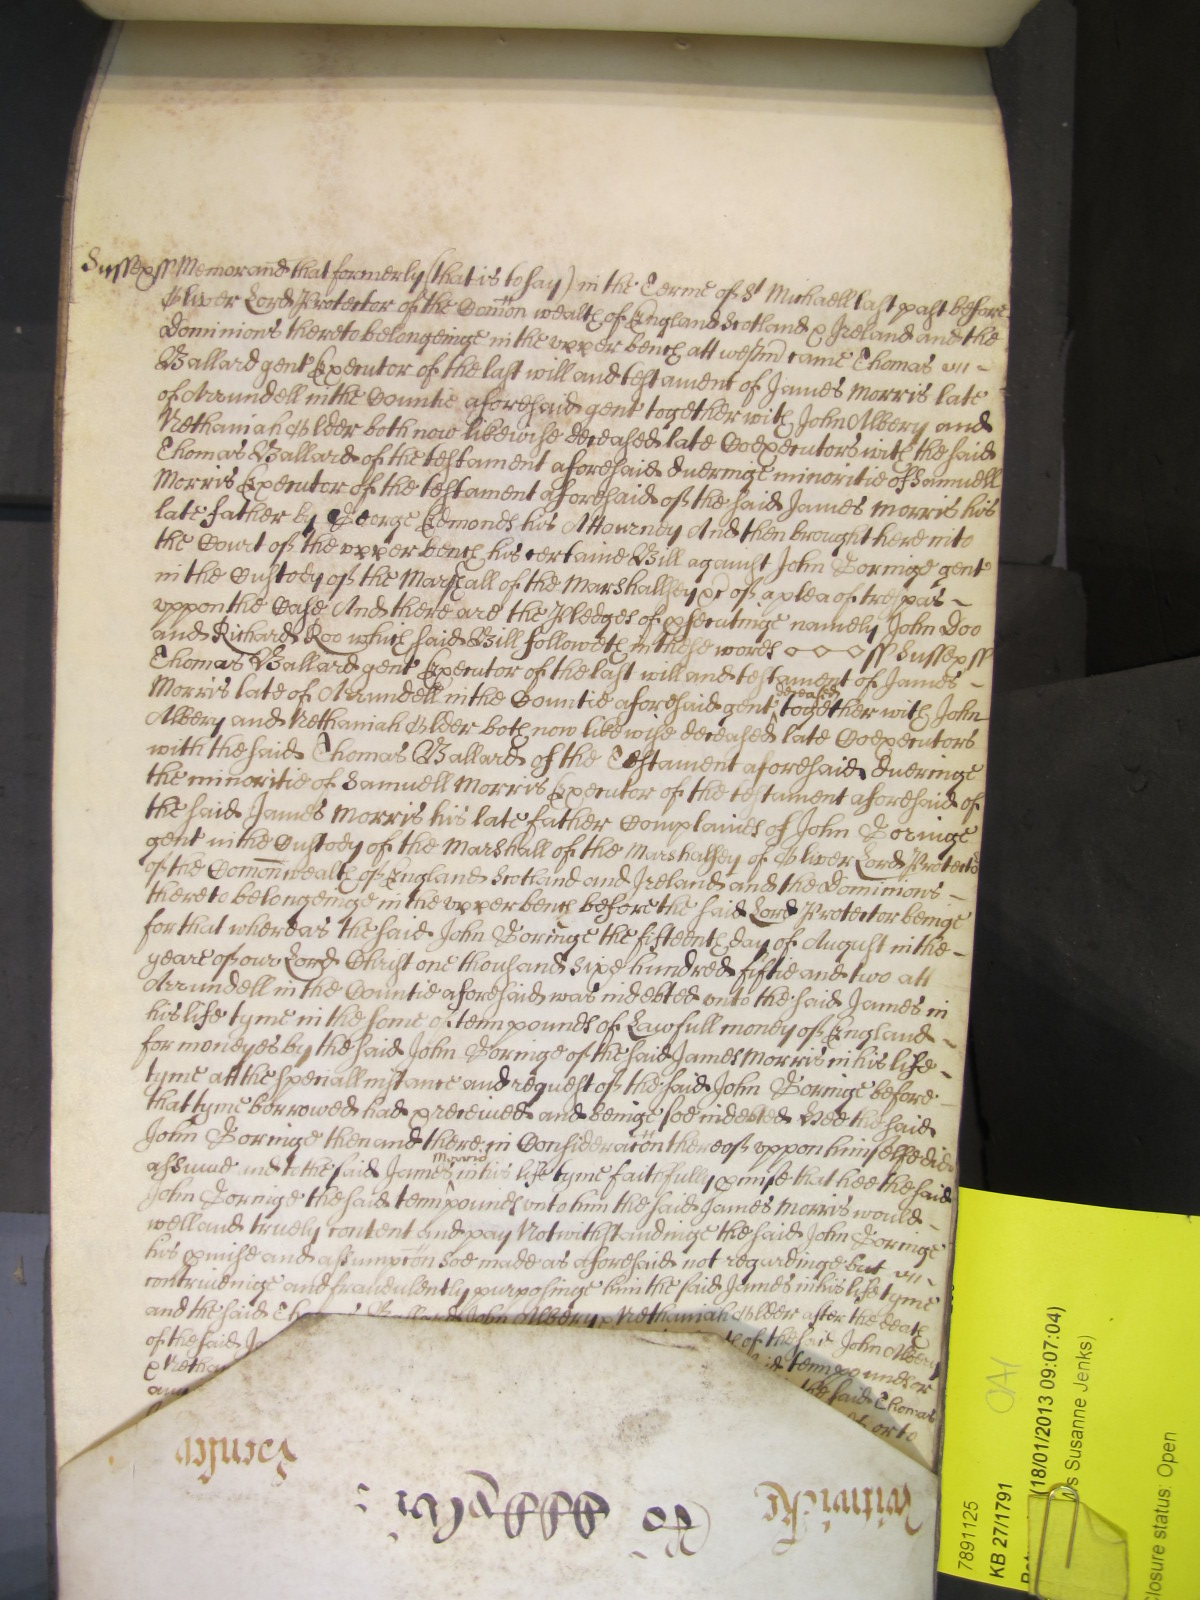 Sussex ss Memorand that formerly (that is to say) in the Terme of St Michaell last past before
Oliver Lord Protector of the Comon wealth of England Scotland & Ireland and the
Dominions thereto belongeinge in the upper bench att westm came Thomas
Ballard gent Executor of the last will and testament of James Morris late
of Arrundell in the Countie aforesaid gent together with John Albery and
Nethaniah Elder both now likewise deceased late Coexecutors with the said
Thomas Ballard of the testament aforesaid dueringe minoritie of Samuell
Morris Executor of the testament aforesaid of the said James Morris his
late father by George Edmonds his Attourney And then brought here into
the Court of the upper bench his certaine Bill against John Goringe gent
in the Custody of the Marshall of the Marshallsey &c of a plea of trespas
uppon the Case And there are the Pledges of psecutinge namely John Doo
and Richard Roo which said Bill followeth in these words ss Sussex ss
Thomas Ballard gent Executor of the last will and testament of James
Morris late of Arrundell in the Countie aforesaid gent deceased together with John
Albery and Nethaniah Elder both now likewise deceased late Coexecutors
with the said Thomas Ballard of the Testament aforesaid dueringe
the minoritie of Samuell Morris Executor of the testament aforesaid of
the said James Morris his late father Complaines of John Goringe
gent in the Custody of the Marshall of the Marshalsey of Oliver Lord Protector
of the Comonwealth of England Scotland and Ireland and the Dominions
thereto belongeinge in the upper bench before the said Lord Protector beinge
for that whereas the said John Goringe the fifteenth day of August in the
yeare of our Lord Christ one thousand sixe hundred fiftie and two att
Arrundell in the Countie aforesaid was indebted unto the said James in
his life tyme in the some of tenn pounds of Lawfull money of England
for moneyes by the said John Goringe of the said James Morris in his life
tyme att the speciall instance and request of the said John Goringe before
that tyme borrowed had & received and beinge soe indebted Hee the said
John Goringe then and there in Consideracon thereof uppon himselfe did
assume and to the said James Morris in his life tyme faithfully pmise that hee the said
John Goringe the said tenn pounds unto him the said James Morris would
well and truely content and pay Notwithstandinge the said John Goringe
his pmise and assumpcon soe made as aforesaid not regardinge but
contriveinge and fraudulently purposinge him the said James in his life tyme
and the said Thomas Ballard John Albery & Nethaniah Elder after the death
of the said of the said John Albery
& Nethan tenn pounds or
and the said Thomas
or to
7891125
KB 27/1791
(18/01/2013 09:07:04)
s Susanne Jenks)
Closure status: Open